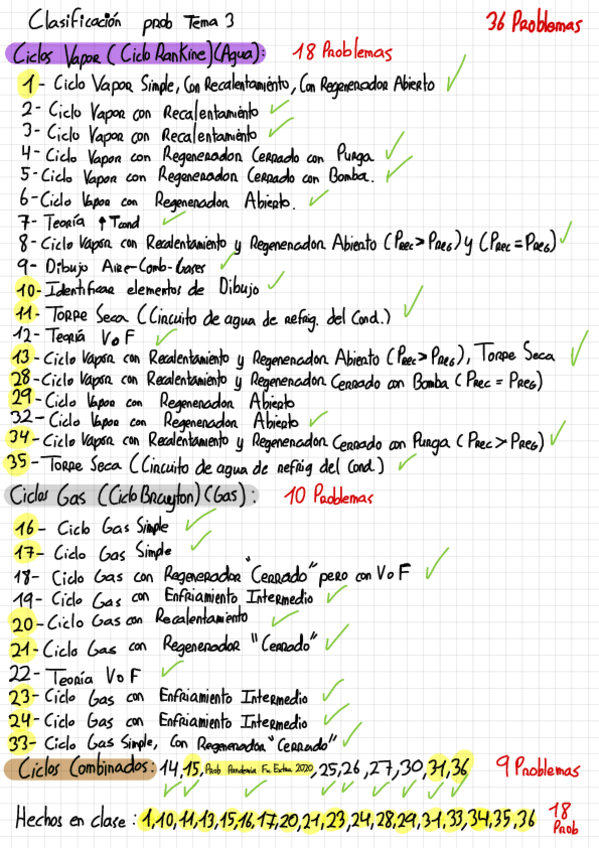 Clasificación prob Tema 3 36 Problemas
Ciclos Vapor (Ciclo Rankine)(Agua): 18 Problemas
1- Ciclo Vapor Simple, Con Recalentamiento, Con Regenerador Abierto
2- Ciclo Vapor con Recalentamiento
3- Ciclo Vapor con Recalentamiento
4- Ciclo Vapor con Regenerador Cerrado con Purga
5- Ciclo Vapor con Regenerador Cerrado con Bomba.
6- Ciclo Vapor con Regenerador Abierto.
7- Teoría ↑Tcond
8- Ciclo Vapor con Recalentamiento y Regenerador Abierto (PREC > PREG) y (PREC = PREG)
9- Dibujo Aire-Comb-Gases
10- Identificar elementos de Dibujo
11- Torre Seca (Circuito de agua de refrig. del Cond.)
12- Teoría V o F
13- Ciclo Vapor con Recalentamiento y Regenerador Abierto (PREC > PREG), Torre Seca
28- Ciclo Vapor con Recalentamiento y Regenerador Cerrado con Bomba (PREC = PREG)
29- Ciclo Vapor con Regenerador Abierto
32- Ciclo Vapor con Regenerador Abierto
34- Ciclo Vapor con Recalentamiento y Regenerador Cerrado con Purga (PREC > PREG)
35- Torre Seca (Circuito de agua de refrig del Cond.)
Ciclos Gas (Ciclo Brayton)(Gas): 10 Problemas
16- Ciclo Gas Simple
17- Ciclo Gas Simple
18- Ciclo Gas con Regenerador "Cerrado" pero con V o F
19- Ciclo Gas con Enfriamiento Intermedio
20- Ciclo Gas con Recalentamiento
21- Ciclo Gas con Regenerador "Cerrado"
22- Teoría V o F
23- Ciclo Gas con Enfriamiento Intermedio
24- Ciclo Gas con Enfriamiento Intermedio
33- Ciclo Gas Simple, Con Regenerador "Cerrado"
Ciclos Combinados: 14, 15, Prob Pandemia Fin Extra 2020, 25, 26, 27, 30, 31, 36 9 Problemas
Hechos en clase: 1, 10, 11, 13, 15, 16, 17, 20, 21, 23, 24, 28, 29, 31, 33, 34, 35, 36 18 Prob